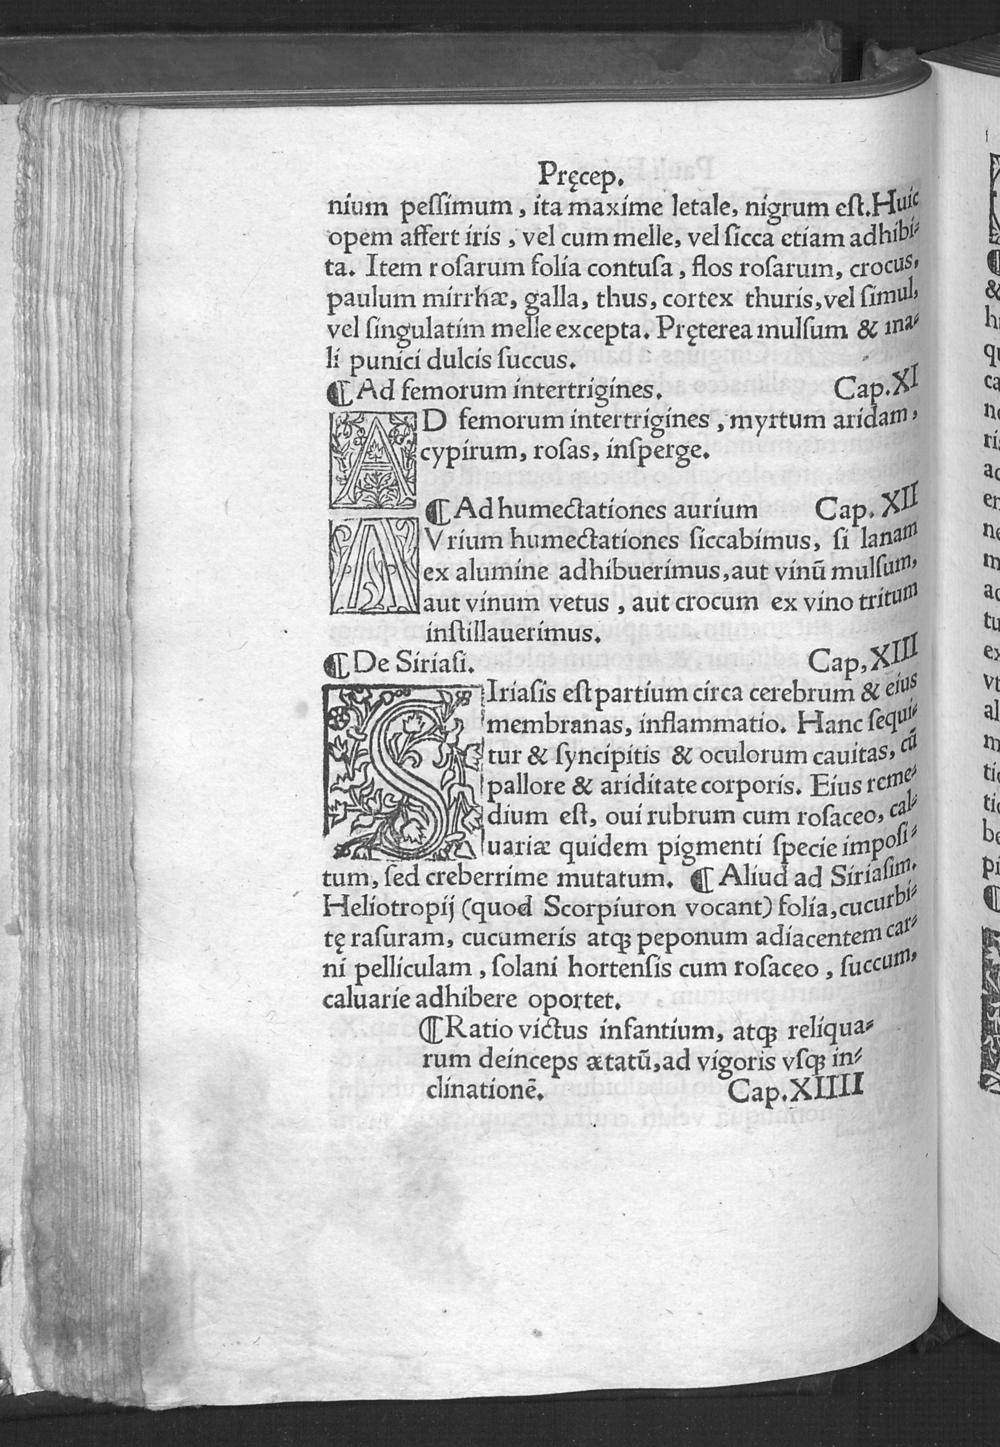 Pręcep.
nium peſſimum, ita maxime letale, nigrum eſt. Huic
opem affert iris, vel cum melle, vel ſicca etiam adhibi-
ta. Item roſarum folia contuſa, flos roſarum, crocus,
paulum mirrhæ, galla, thus, cortex thuris, vel ſimul,
vel ſingulatim melle excepta. Pręterea mulſum & ma-
li punici dulcis ſuccus.
¶ Ad femorum intertrigines. Cap.XI
AD femorum intertrigines, myrtum aridam,
cypirum, roſas, inſperge.
¶ Ad humectationes aurium Cap. XII
AVrium humectationes ſiccabimus, ſi lanam
ex alumine adhibuerimus, aut vinū mulſum,
aut vinum vetus, aut crocum ex vino tritum
inſtillauerimus.
¶ De Siriaſi. Cap,XIII
SIriaſis eſt partium circa cerebrum & eius
membranas, inflammatio. Hanc ſequi-
tur & ſyncipitis & oculorum cauitas, cū
pallore & ariditate corporis. Eius reme-
dium eſt, oui rubrum cum roſaceo, cal-
uariæ quidem pigmenti ſpecie impoſi-
tum, ſed creberrime mutatum. ¶ Aliud ad Siriaſim.
Heliotropij (quod Scorpiuron vocant) folia, cucurbi-
tę raſuram, cucumeris atqꝫ peponum adiacentem car-
ni pelliculam, ſolani hortenſis cum roſaceo, ſuccum,
caluarie adhibere oportet.
¶ Ratio victus infantium, atqꝫ reliqua-
rum deinceps ætatū, ad vigoris vſqꝫ in-
clinationē. Cap.XIIII